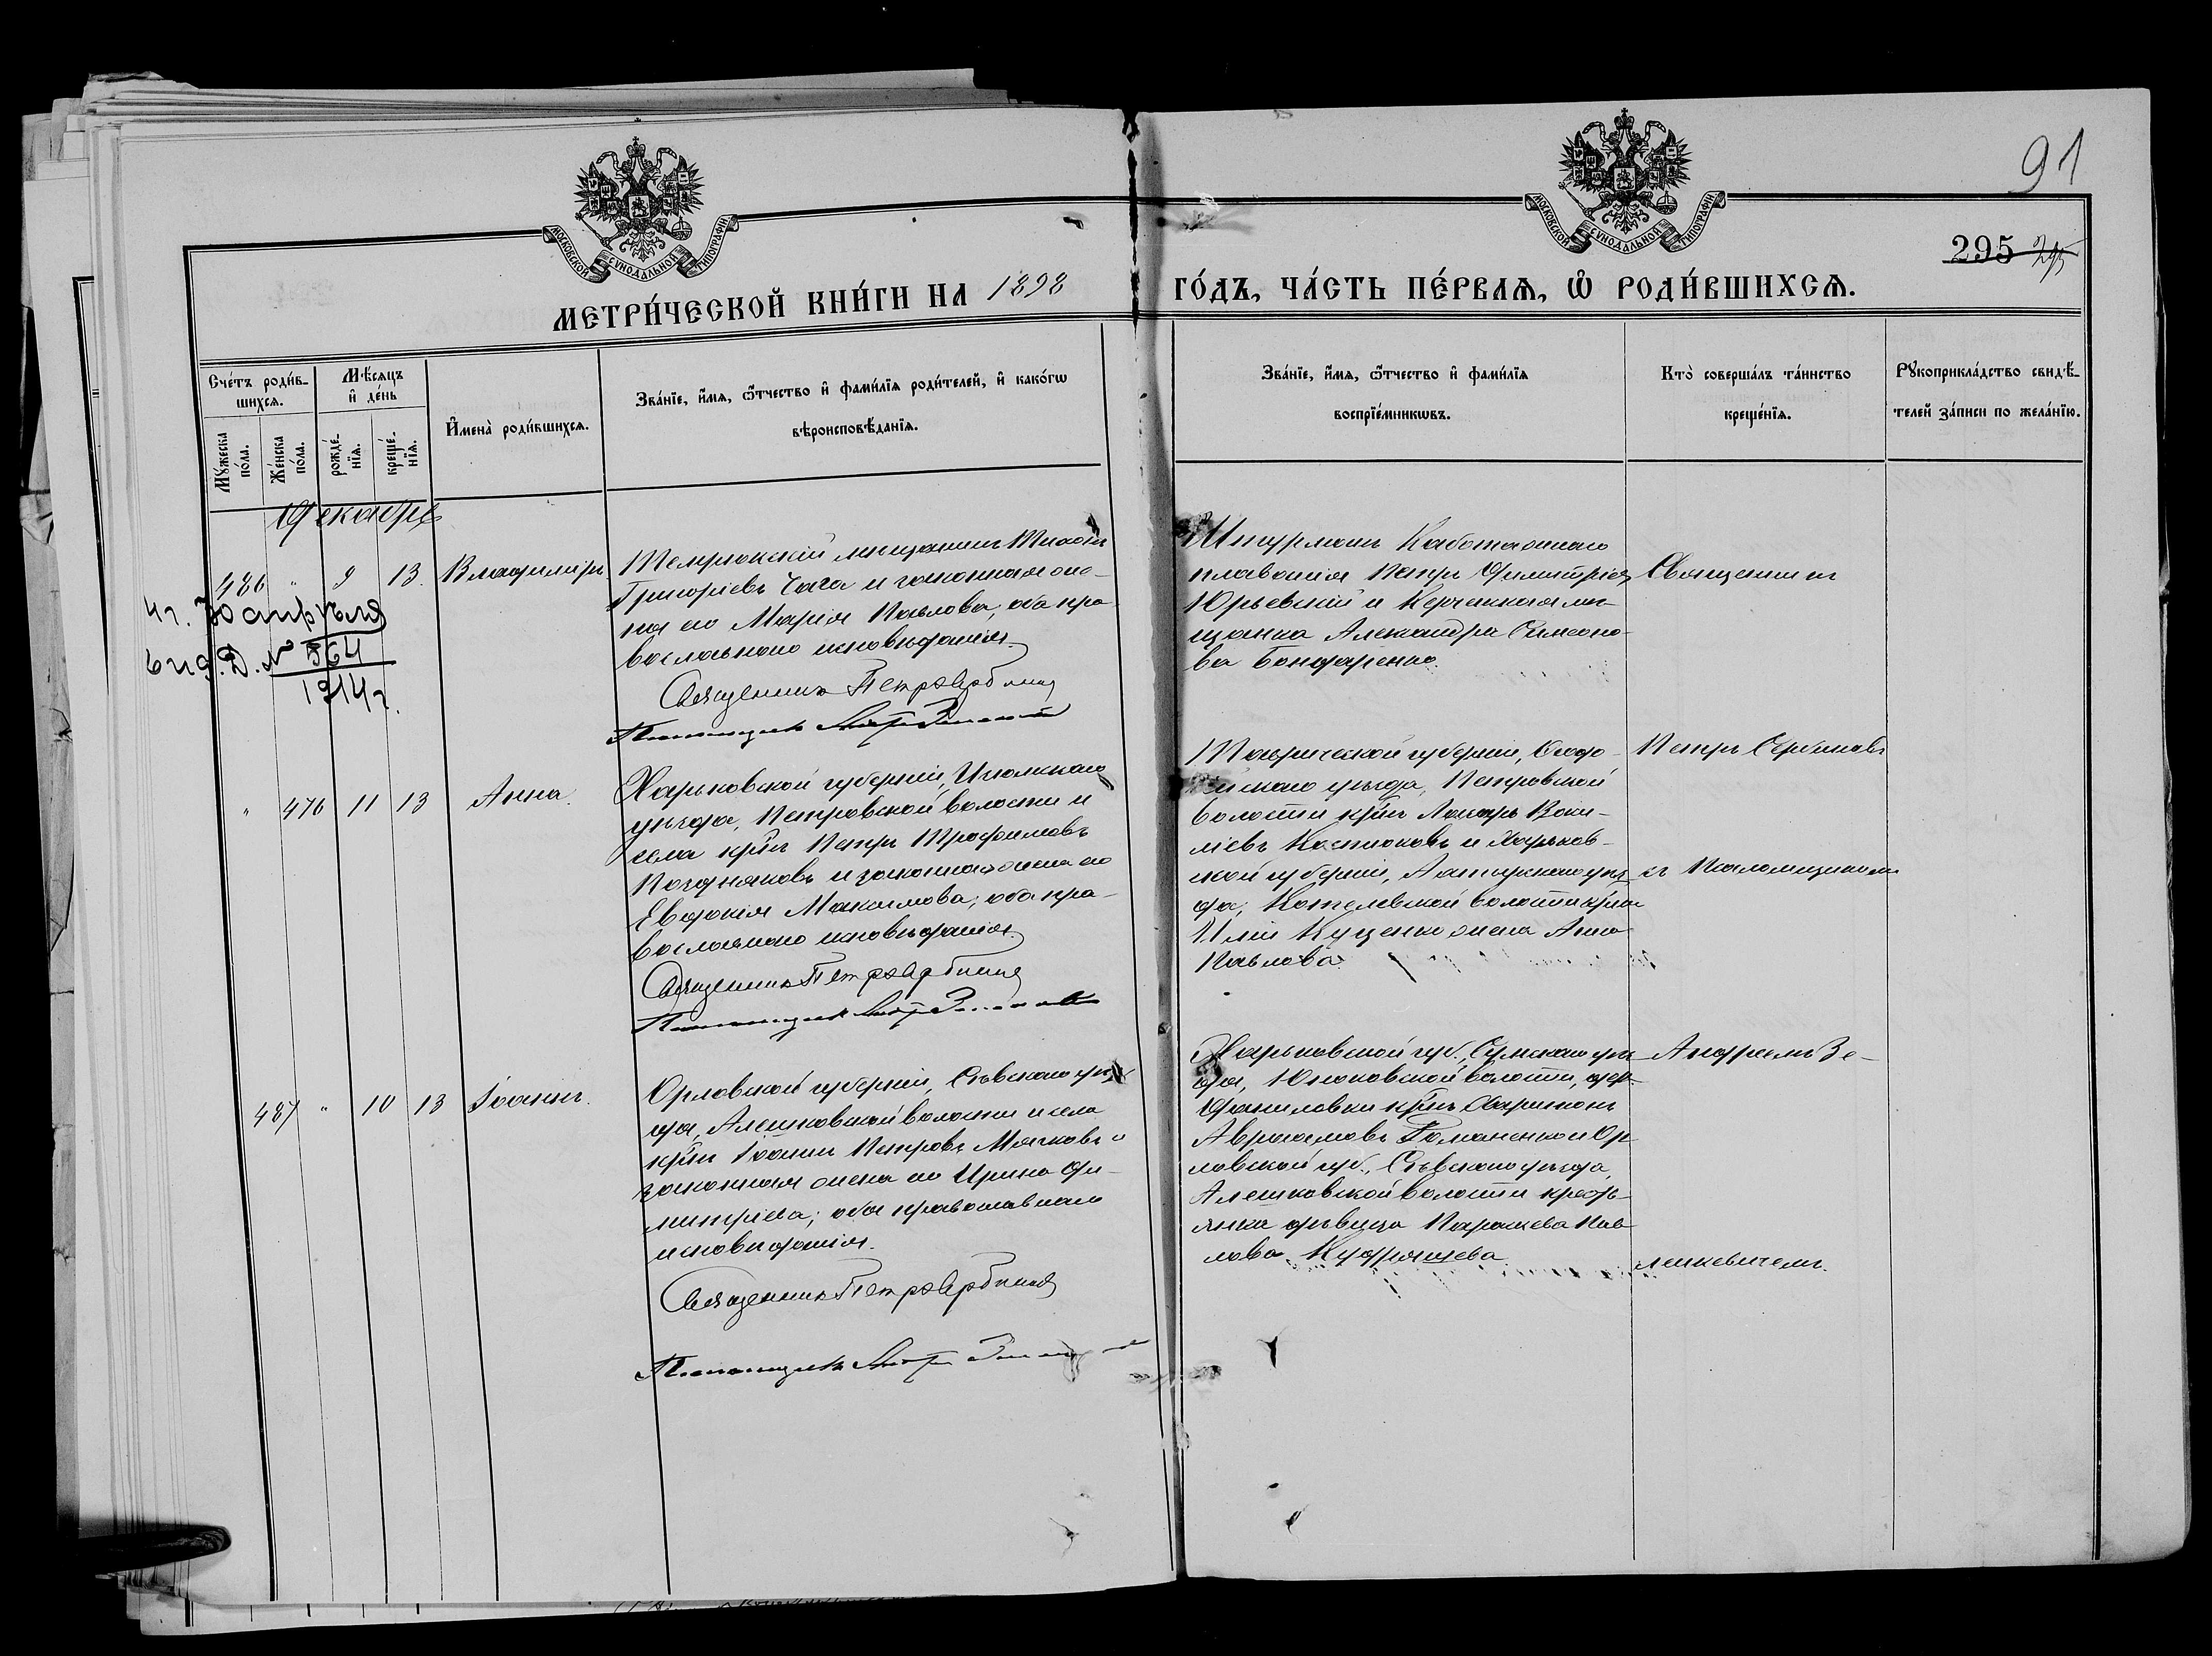 91
295 295
МОСКОВСКОЙ СѴНОДАЛЬНОЙ ТИПОГРАФІИ
МОСКОВСКОЙ СѴНОДАЛЬНОЙ ТИПОГРАФІИ
МЕТРИ́ЧЕСКОЙ КНИ́ГИ НА 1898 ГО́ДЪ, ЧА́СТЬ ПЕ́РВАѦ, Ѡ҆ РОДИ́ВШИХСѦ.
Сче́тъ роди́в-
шихсѧ.
Мꙋ́жеска
по́ла.
Же́нска
по́ла.
Мѣ́сѧцъ
и҆ де́нь
рожде́-
нїѧ.
креще́-
нїѧ.
И҆мена̀ роди́вшихсѧ.
Зва́нїе, и҆́мѧ, ѻ҆́тчество и҆ фами́лїѧ роди́телей, и҆ како́гѡ
вѣроисповѣ́данїѧ.
Зва́нїе, и҆́мѧ, ѻ҆́тчество и҆ фами́лїѧ
воспрїе́мникѡвъ.
Кто̀ соверша́лъ та́инство
креще́нїѧ.
Рꙋкоприкла́дство свидѣ́-
телей за́писи по жела́нїю.
Декабрь
486 " 9 13. Владиміръ
Темрюкскій мѣщанинъ
Григоріевъ Чага и законная же-
на его Марія Павлова, оба пра-
вославнаго исповѣданія.
Священникъ Петръ Сербиновъ
Псаломщикъ
30 апрѣля
выд. Д. № 564
1914 г.
Штурманъ Каботажнаго
плаванія Петръ Димитріев
Юрьевскій и Керченская мѣ-
щанка Александра Симоно-
ва Бондаренко.
Священникъ
" 476 11 13 Анна.
Харьковской губерніи, Изюмскаго
уѣзда, Петровской волости и
села крнъ Петръ Трофимовъ
Поздняковъ и законная жена его
Евдокія Максимова; оба пра-
вославнаго исповѣданія.
Священникъ Петръ Сербиновъ
Псаломщикъ
Таврической губерніи, Ѳеодо-
сійскаго уѣзда, Петровской
волости крнъ Лазарь
Костюковъ и Харьков-
ской губерніи, Ахтырскаго уѣз-
да, Котелевской волости крна
Иліи Куценко жена Анна
Павлова.
Петръ Сербиновъ
съ Псаломщикомъ
487 " 10 13 Іоаннъ.
Орловской губерніи, Сѣвскаго уѣз-
да, Алешковской волости и села
крнъ Іоаннъ Петровъ Мячковъ и
законная жена его Ирина Ди-
митріева; оба православнаго
исповѣданія.
Священникъ Петръ Сербиновъ
Псаломщикъ
Харьковской губ., Сумскаго уѣз-
да, Юнаковской волости, дер.
Даниловки крнъ Харитонъ
Авраамовъ Романенко и Ор-
ловской губ., Сѣвскаго уѣзда,
Алешковской волости кресть-
янка дѣвица Параскева Пав-
лова Кудрявцева.
Андреемъ Зе-
ленкевичемъ.